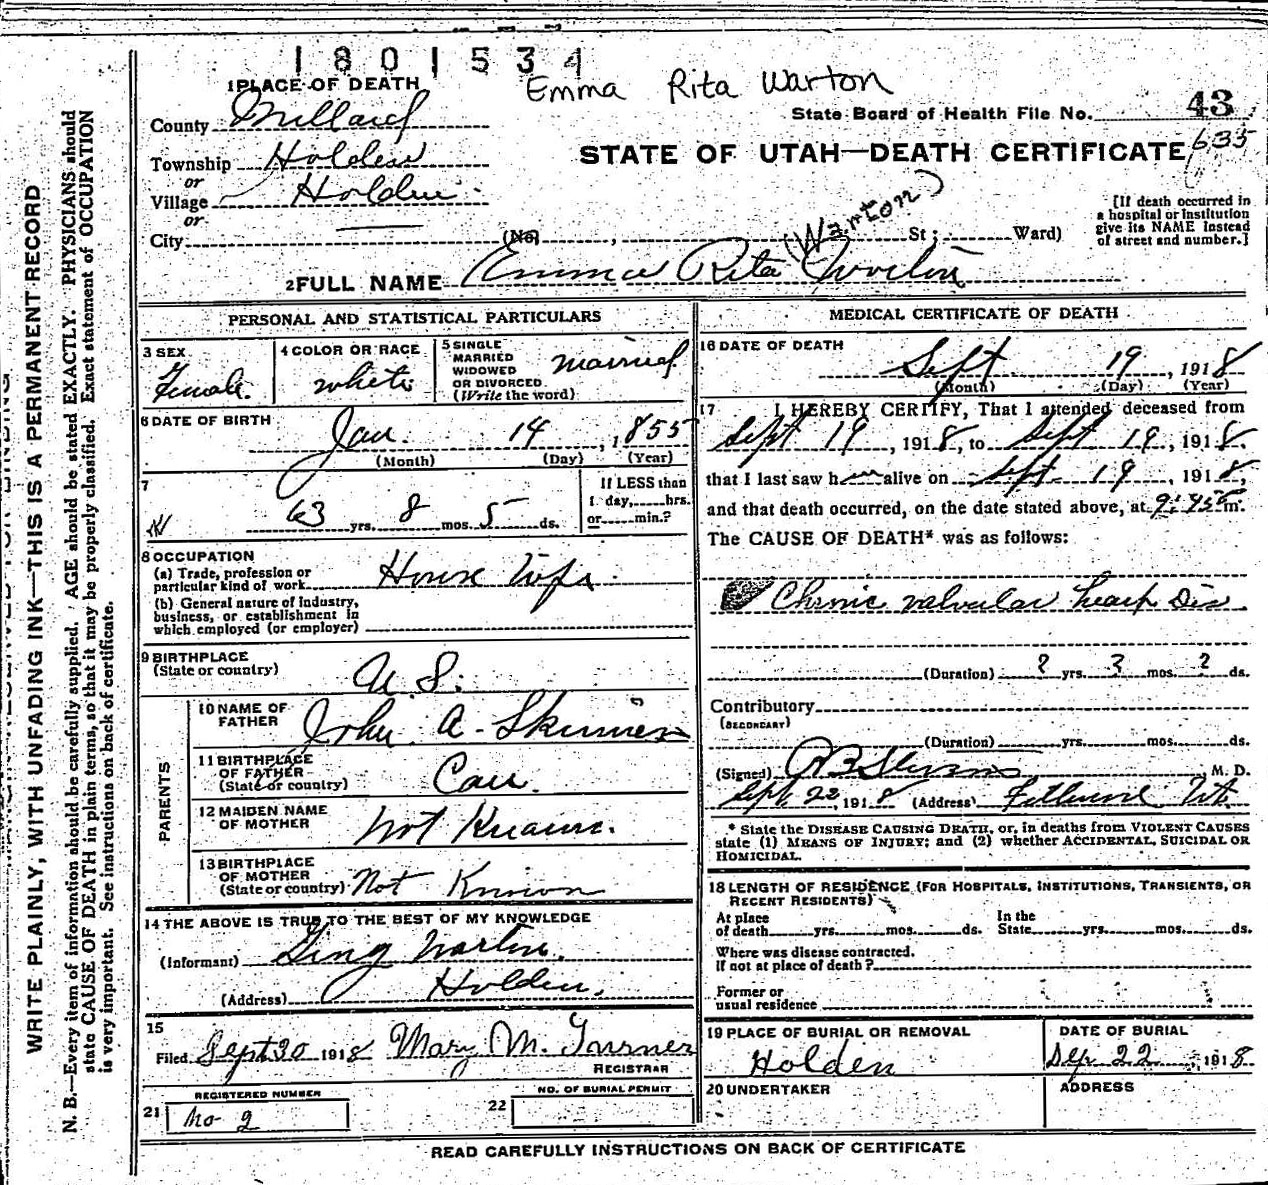 1801534
Emma Rita Warton
1 PLACE OF DEATH
County Millard
State Board of Health File No. 43
635
Township Holden
or
STATE OF UTAH—DEATH CERTIFICATE
Village Holden
or
City (No. , St; Ward)
(Warton)
[If death occurred in
a hospital or institution
give its NAME instead
of street and number.]
2 FULL NAME Emma Rita
PERSONAL AND STATISTICAL PARTICULARS
3 SEX
Female
4 COLOR OR RACE
white
5 SINGLE
MARRIED
WIDOWED
OR DIVORCED
(Write the word)
married
6 DATE OF BIRTH
Jan. 14, 1855
(Month) (Day) (Year)
7
63 yrs. 8 mos. 5 ds.
If LESS than
1 day, hrs.
or min.?
8 OCCUPATION
(a) Trade, profession or
particular kind of work House Wife
(b) General nature of industry,
business, or establishment in
which employed (or employer)
9 BIRTHPLACE
(State or country) U.S.
PARENTS
10 NAME OF
FATHER John A. Skinner
11 BIRTHPLACE
OF FATHER
(State or country)
12 MAIDEN NAME
OF MOTHER not Known.
13 BIRTHPLACE
OF MOTHER
(State or country) Not Known
14 THE ABOVE IS TRUE TO THE BEST OF MY KNOWLEDGE
(Informant)
(Address) Holden.
15
Filed Sept 20 1918 Mary M. Turner
REGISTRAR
REGISTERED NUMBER
21 No 9
NO. OF BURIAL PERMIT
22
MEDICAL CERTIFICATE OF DEATH
16 DATE OF DEATH
Sept 19, 1918
(Month) (Day) (Year)
17 I HEREBY CERTIFY, That I attended deceased from
Sept 19, 1918, to Sept 19, 1918.
that I last saw her alive on Sept 19, 1918,
and that death occurred, on the date stated above, at 9:45 m.
The CAUSE OF DEATH* was as follows:
Chronic valvular heart Dis
(Duration) ? yrs. 3 mos. ? ds.
Contributory
(SECONDARY)
(Duration) yrs. mos. ds.
(Signed) Stevens M. D.
Sept 22, 1918 (Address) Fillmore Ut.
* State the DISEASE CAUSING DEATH, or, in deaths from VIOLENT CAUSES
state (1) MEANS OF INJURY; and (2) whether ACCIDENTAL, SUICIDAL OR
HOMICIDAL.
18 LENGTH OF RESIDENCE (FOR HOSPITALS, INSTITUTIONS, TRANSIENTS, OR
RECENT RESIDENTS)
At place
of death yrs. mos. ds.
In the
State yrs. mos. ds.
Where was disease contracted.
if not at place of death?
Former or
usual residence
19 PLACE OF BURIAL OR REMOVAL
Holden
DATE OF BURIAL
Sep 22, 1918
20 UNDERTAKER
ADDRESS
READ CAREFULLY INSTRUCTIONS ON BACK OF CERTIFICATE
WRITE PLAINLY, WITH UNFADING INK—THIS IS A PERMANENT RECORD
N. B.—Every item of information should be carefully supplied. AGE should be stated EXACTLY. PHYSICIANS should
state CAUSE OF DEATH in plain terms, so that it may be properly classified. Exact statement of OCCUPATION
is very important. See instructions on back of certificate.